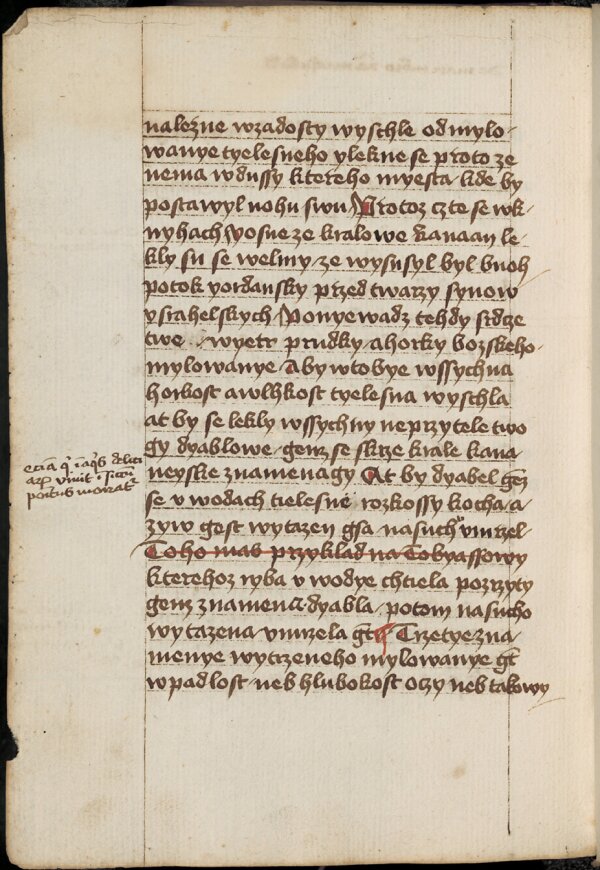 nalezne wzadosty wyschle odmylo-
wanye tyelesneho ylekne se proto ze
nema wdussy ktereho myesta kde by
postawyl nohu swu Protoz czte se wk-
nyhach yosue ze kralowe kanaan le-
kly su se welmy ze wysusyl byl buoh
potok yordansky przed twarzy synow
ysrahelskych Ponyewadz tehdy srdce
twe wyetr prudky a horky bozskeho
mylowanye Aby wtobye wssychna
horkost a wlhkost tyelesna wyschla
at by se lekly wssychny neprzytele two
gy dyablowe genz se skrze krale kana
neyske znamenagy At by dyabel genz
se v wodach tielesne rozkossy kocha a
zyw gest wytazen gsa na such vmrzel
Toho mas przyklad na Tobyassowy
kterehoz ryba v wodye chtiela pozrzyty
genz znamena dyabla potom nasucho
wytazena vmrzela gt Trzetye zna
menye wytrzeneho mylowanye gt
wpadlost neb hlubokost oczy neb takowy